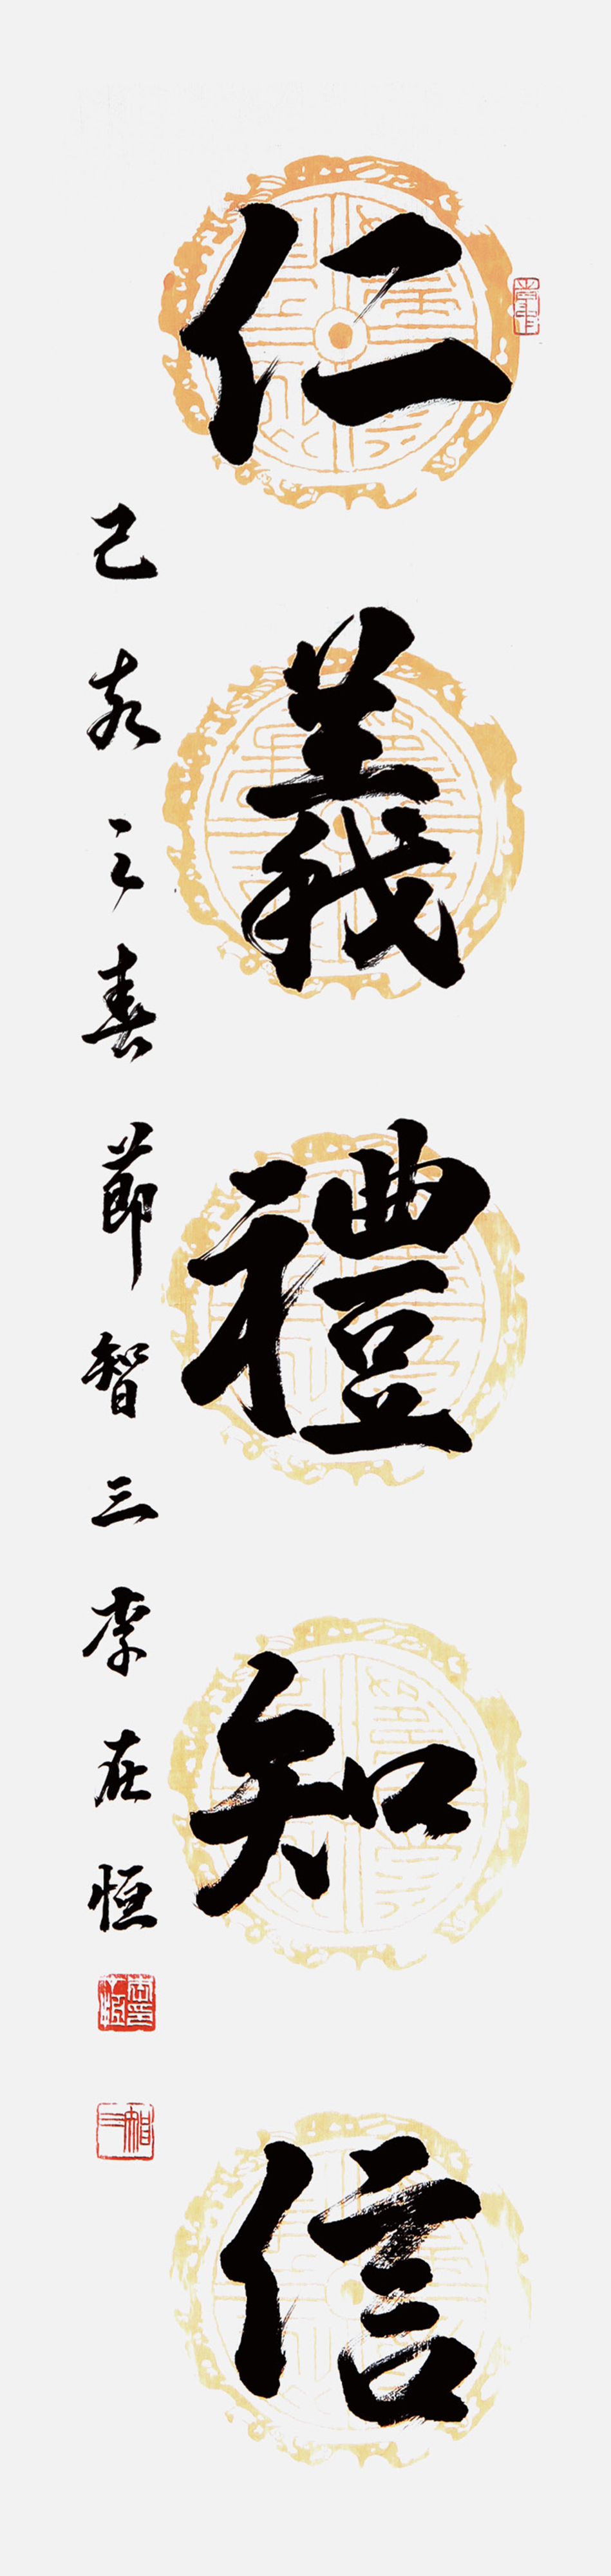 仁義禮知信
己亥之春節智三李在恒